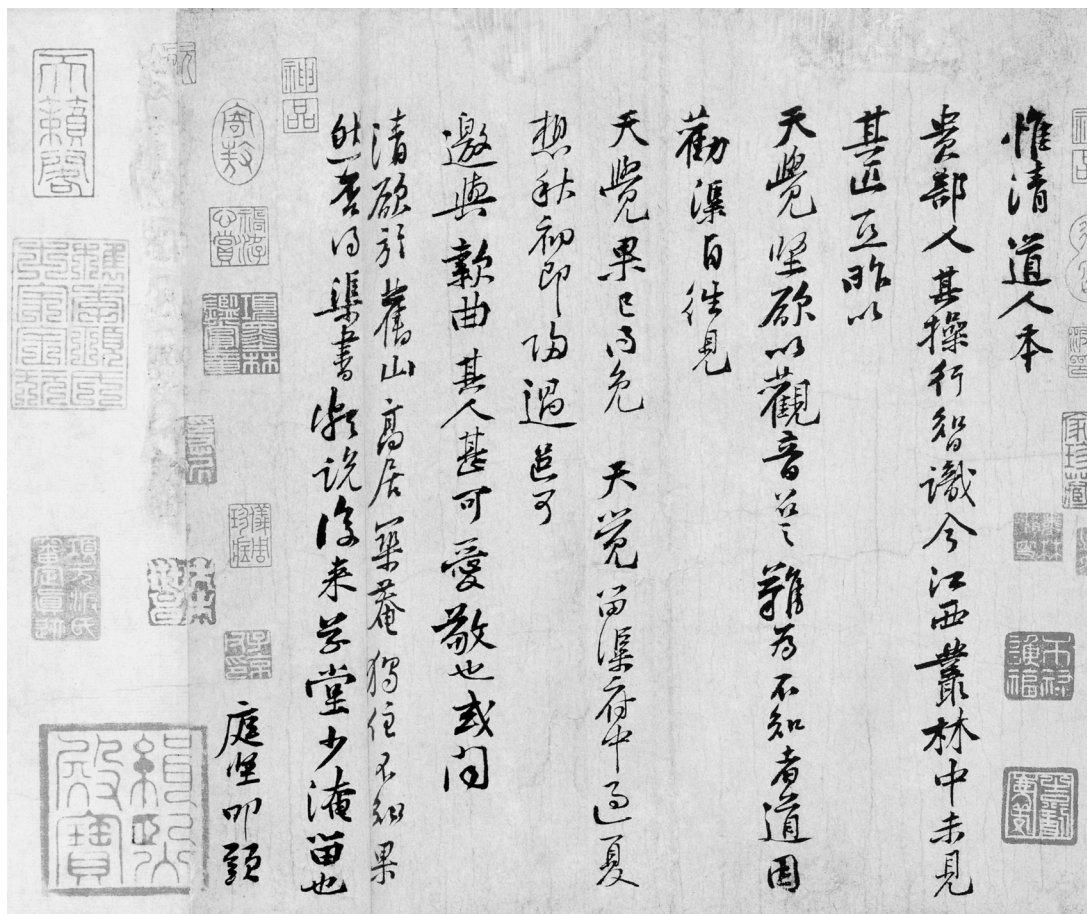 惟清道人本
貴部人其操行智識今江西叢林中未見
其匹亞昨以
天覺堅欲以觀音召之難為不知者道因
勸渠自往見
天覺果已得免 天覺留渠府中過夏
想秋初即歸過邑可
邀與款曲其人甚可愛敬也或聞
清欲於舊山高居築菴獨住不知果
然否得渠書頗說後來草堂少淹留也
庭堅叩頭
神品
寄敖
項墨林鑑賞章
天籟閣
項元汴氏審定真跡
緝熙殿寶